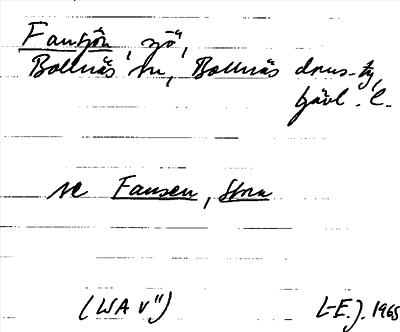 Fansjön, sjö,
Bollnäs sn, Bollnäs doms.-fg,
Gävl. l.
se Fansen, Stora
(WA V")
L-E.J. 1965